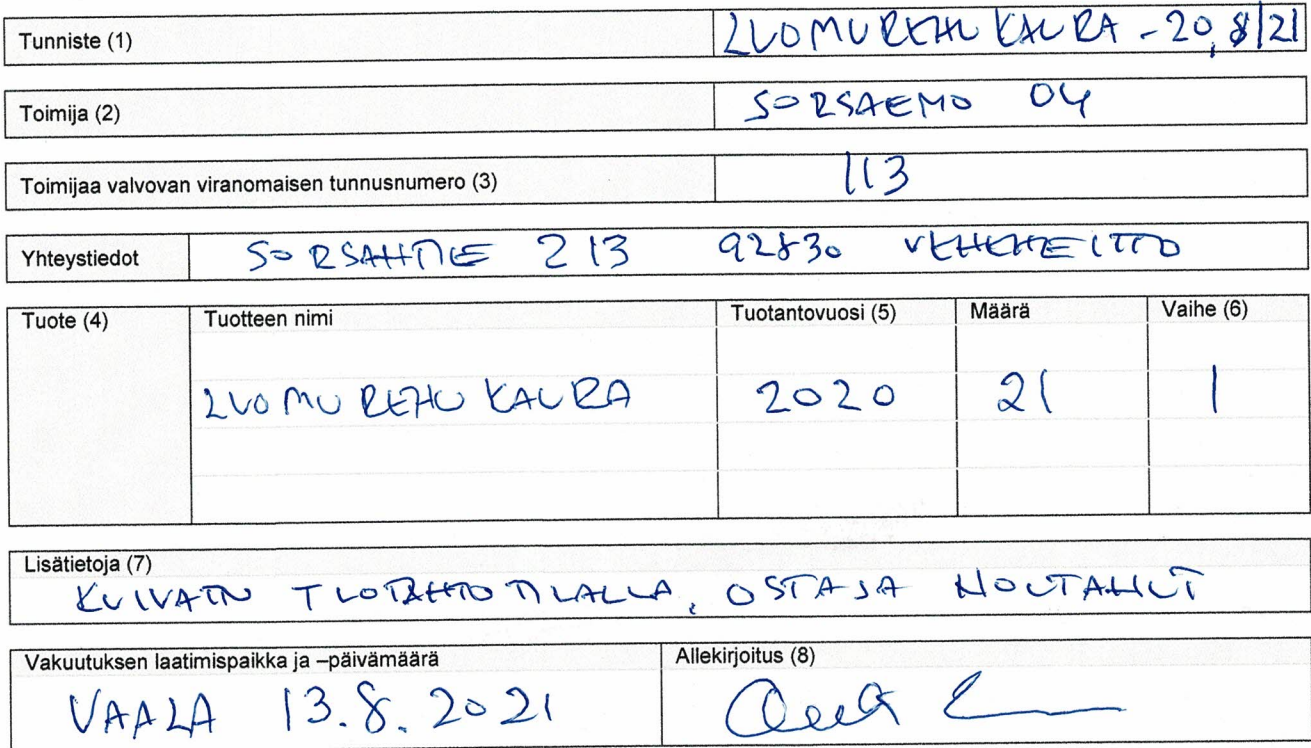 Tunniste (1) LUOMU REHU KAURA - 20,8/21
Toimija (2) SORSAEMO OY
Toimijaa valvovan viranomaisen tunnusnumero (3) 113
Yhteystiedot SORSAHTIE 213 92830
Tuote (4) Tuotteen nimi Tuotantovuosi (5) Määrä Vaihe (6)
LUOMU REHU KAURA 2020 21 1
Lisätietoja (7)
KUIVATTU TUOTANTOTILALLA, OSTAJA NOUTANUT
Vakuutuksen laatimispaikka ja –päivämäärä Allekirjoitus (8)
VAALA 13.8.2021